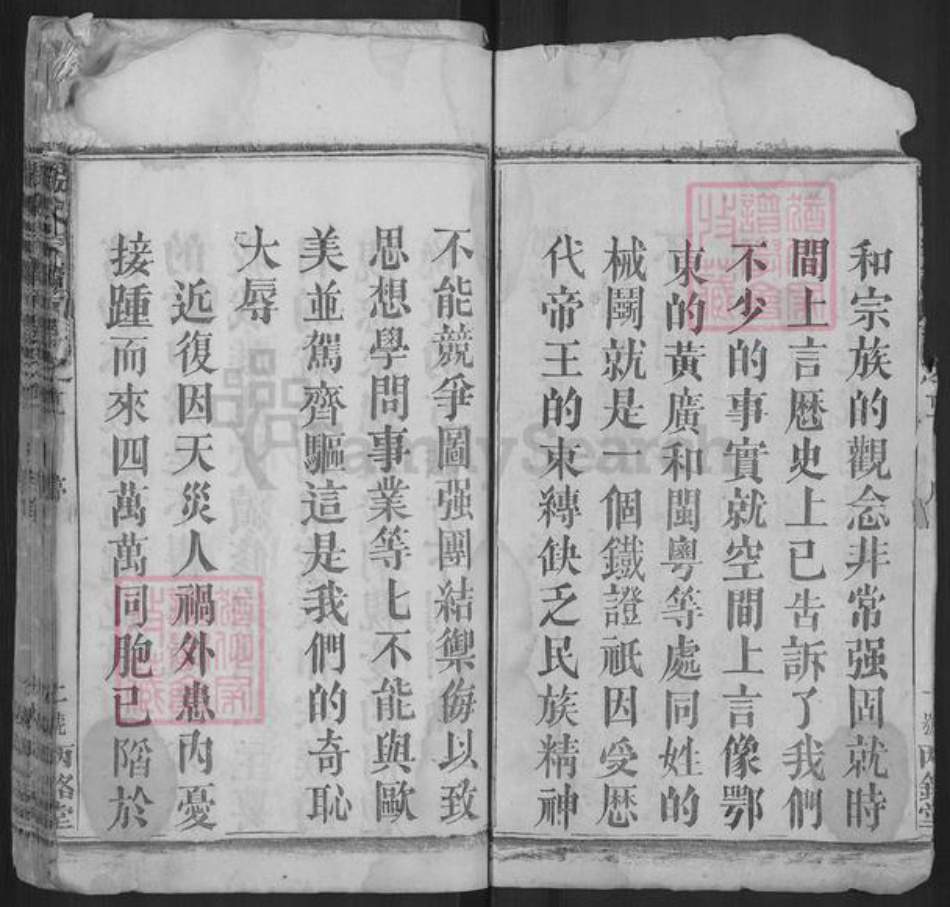 和宗族的觀念非常强固就時
間上言歷史上已告訴了我們
不少的事實就空間上言像鄂
東的黃廣和閩粵等處同姓的
械鬬就是一個鐵證祇因受歷
代帝王的束縛缺乏民族精神
不能競爭圖强團結禦侮以致
思想學問事業等七不能與歐
美並駕齊驅這是我們的奇恥
大辱
近復因天災人禍外患內憂
接踵而來四萬萬同胞已陷於
FamilySearch